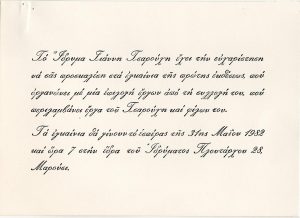 Τό Ἵδρυμα Γιάννη Τσαρούχη ἔχει τήν εὐχαρίστηση
νά σᾶς προσκαλέσει στά ἐγκαίνια τῆς πρώτης ἐκθέσεως, πού
ὀργανώνει μέ μία ἐπιλογή ἔργων ἀπό τή συλλογή του, πού
περιλαμβάνει ἔργα τοῦ Τσαρούχη καί φίλων του.
Τά ἐγκαίνια θά γίνουν τό ἑσπέρας τῆς 31ης Μαΐου 1982
καί ὥρα 7 στήν ἕδρα τοῦ Ἱδρύματος Πλουτάρχου 28,
Μαρούσι.